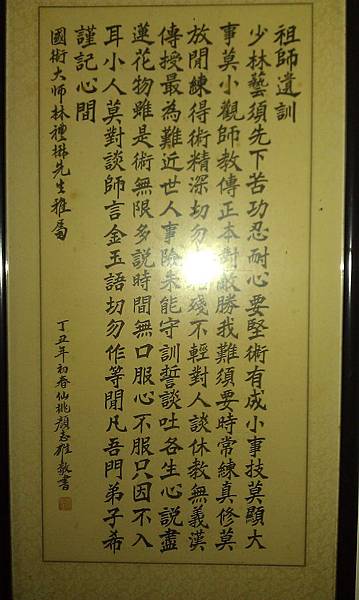 祖師遺訓
少林藝須先下苦功忍耐心要堅術有成小事技莫顯大
事莫小觀師教傳正本對敵勝我難須要時常練真修莫
放閒練得術精深切勿殘不輕對人談休教無義漢
傳授最為難近世人事險未能守訓誓談吐各生心說盡
蓮花物雖是術無限多說時間無口服心不服只因不入
耳小人莫對談師言金玉語切勿作等閒凡吾門弟子希
謹記心間
國術大師林種先生雅屬
丁丑年初春仙桃顏志雄敬書